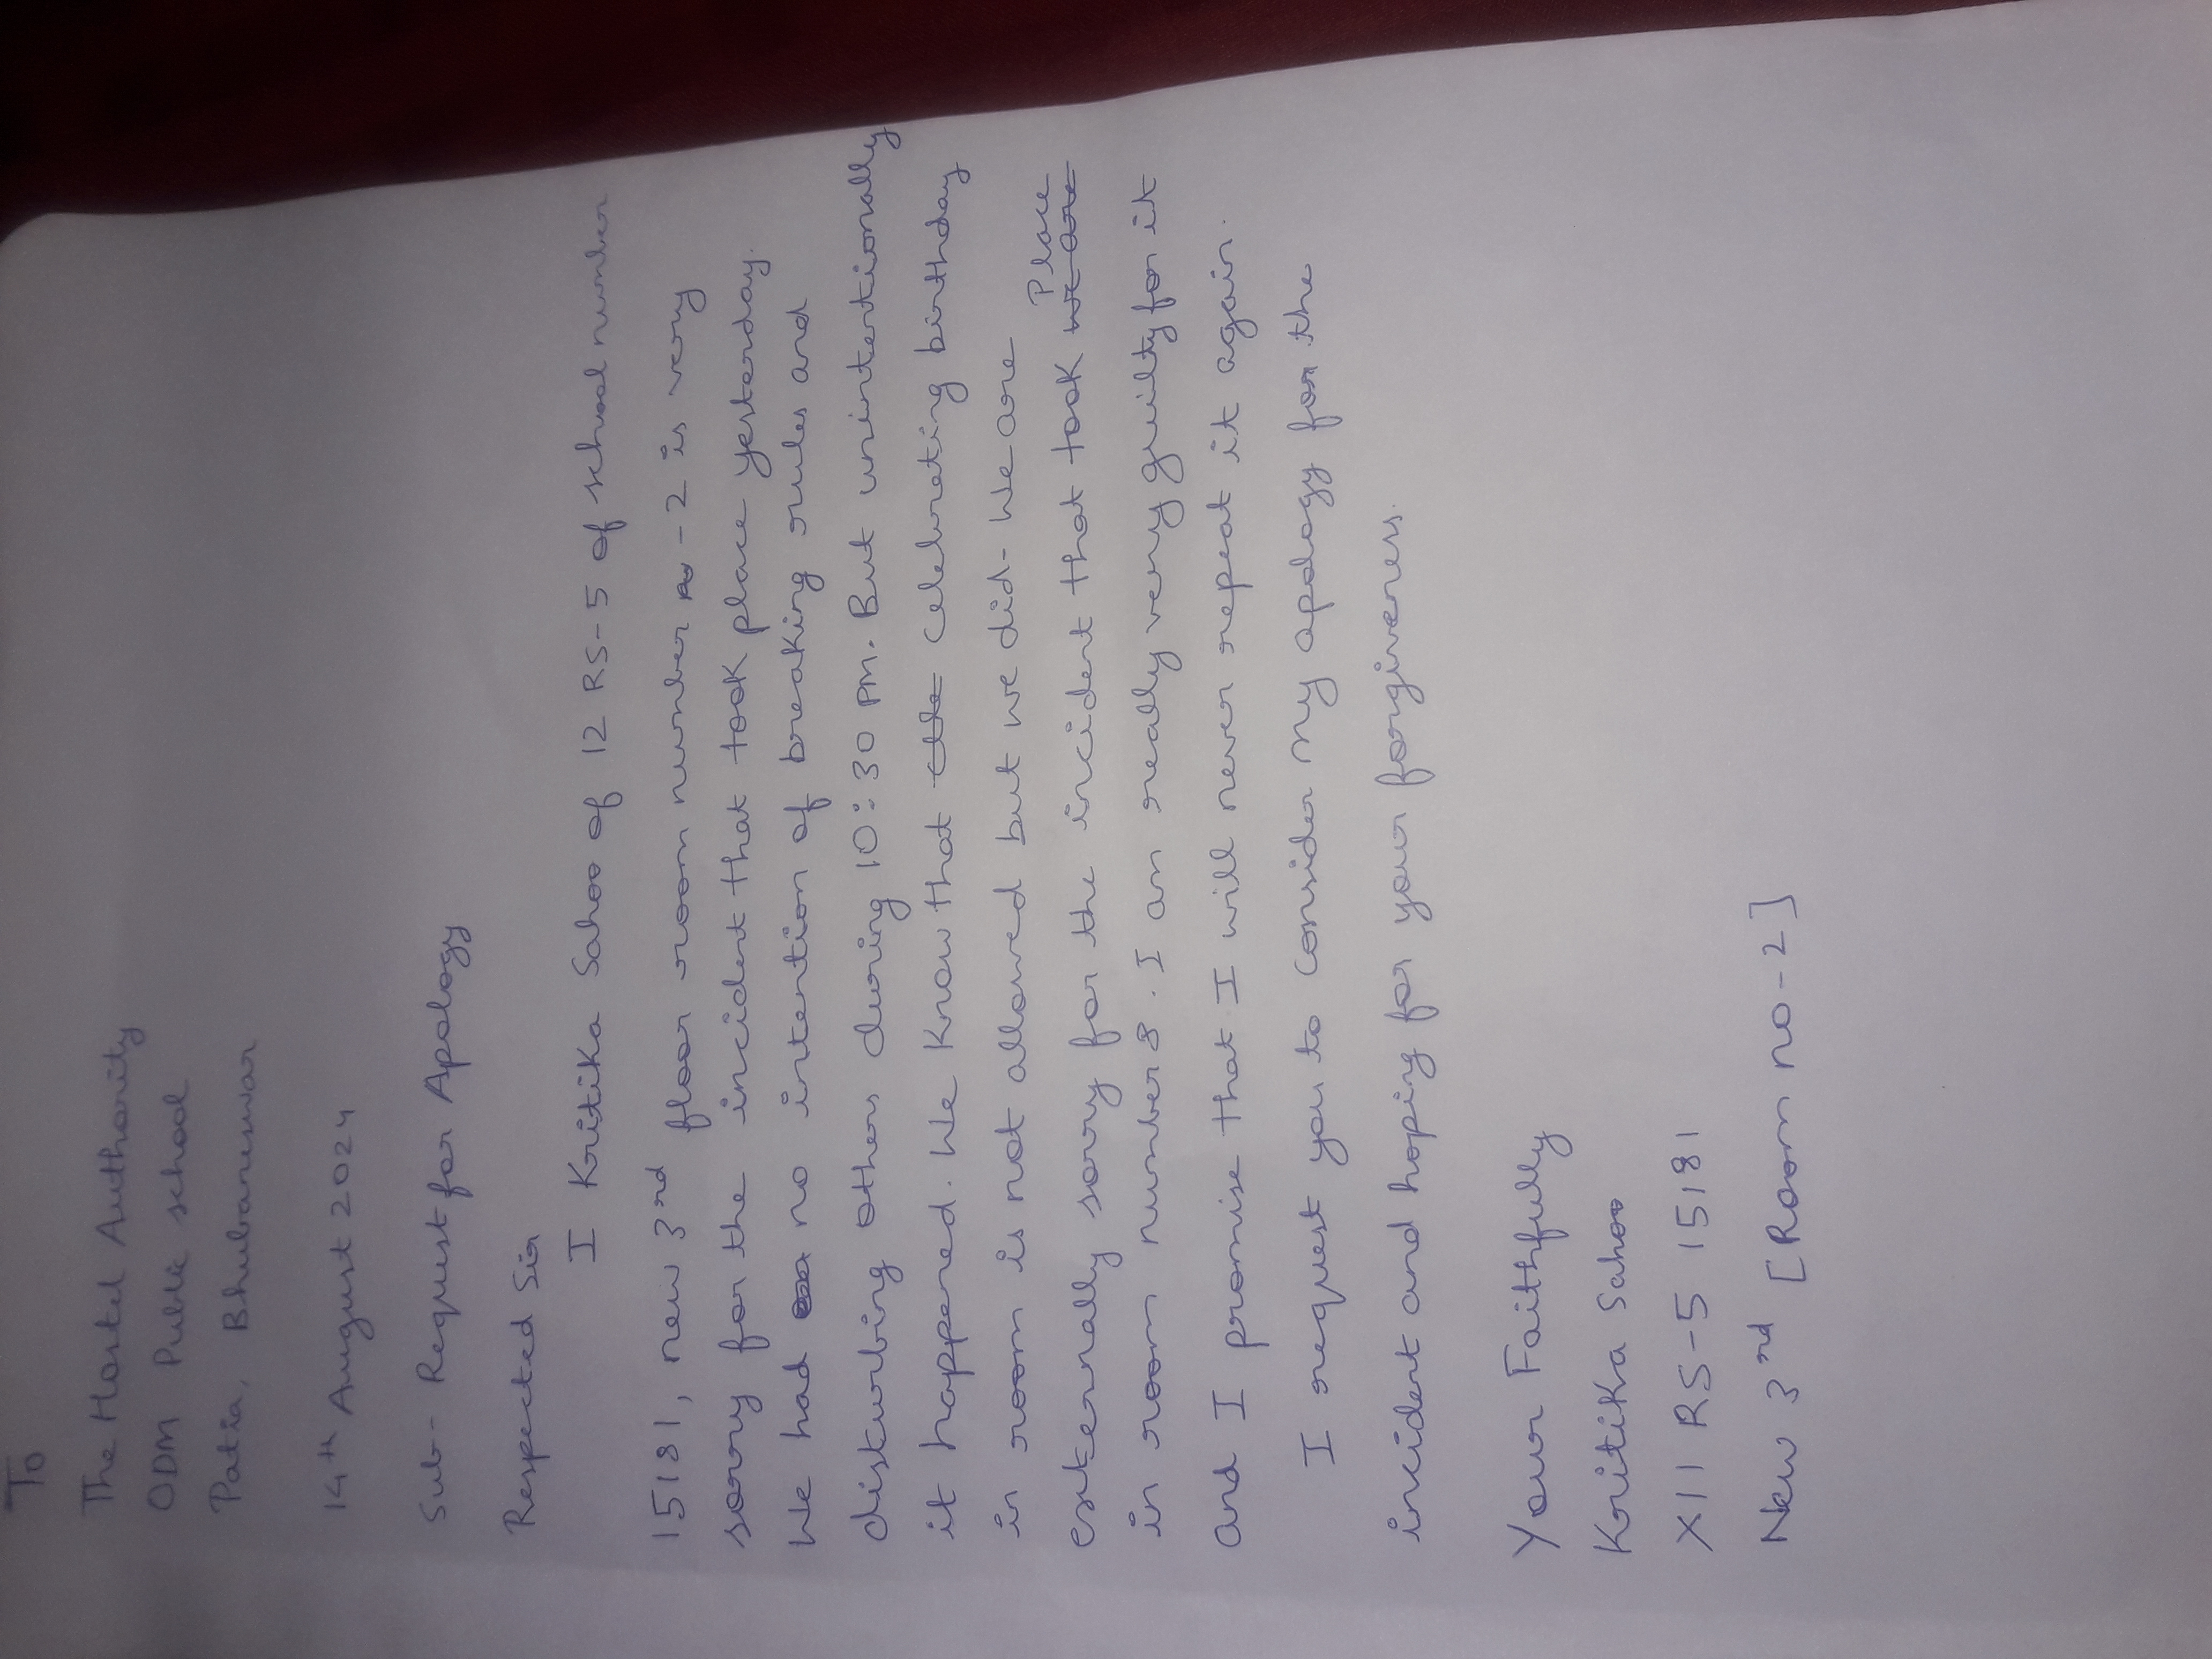 To
The Hostel Authority
ODM Public school
Patia, Bhubaneswar
14th August 2024
Sub- Request for Apology
Respected Sir
I Kritika Sahoo of 12 RS-5 of school number
15181, new 3rd floor room number - 2 is very
sorry for the incident that took place yesterday.
We had no intention of breaking rules and
disturbing others during 10:30 PM. But unintentionally
it happened. We know that celebrating birthday
in room is not allowed but we did. We are
externally sorry for the incident that took we are Place
in room number 8. I am really very guilty for it
and I promise that I will never repeat it again.
I request you to consider my apology for the
incident and hoping for your forgiveness.
Your Faithfully
Kritika Sahoo
XII RS-5 15181
New 3rd [Room no-2]